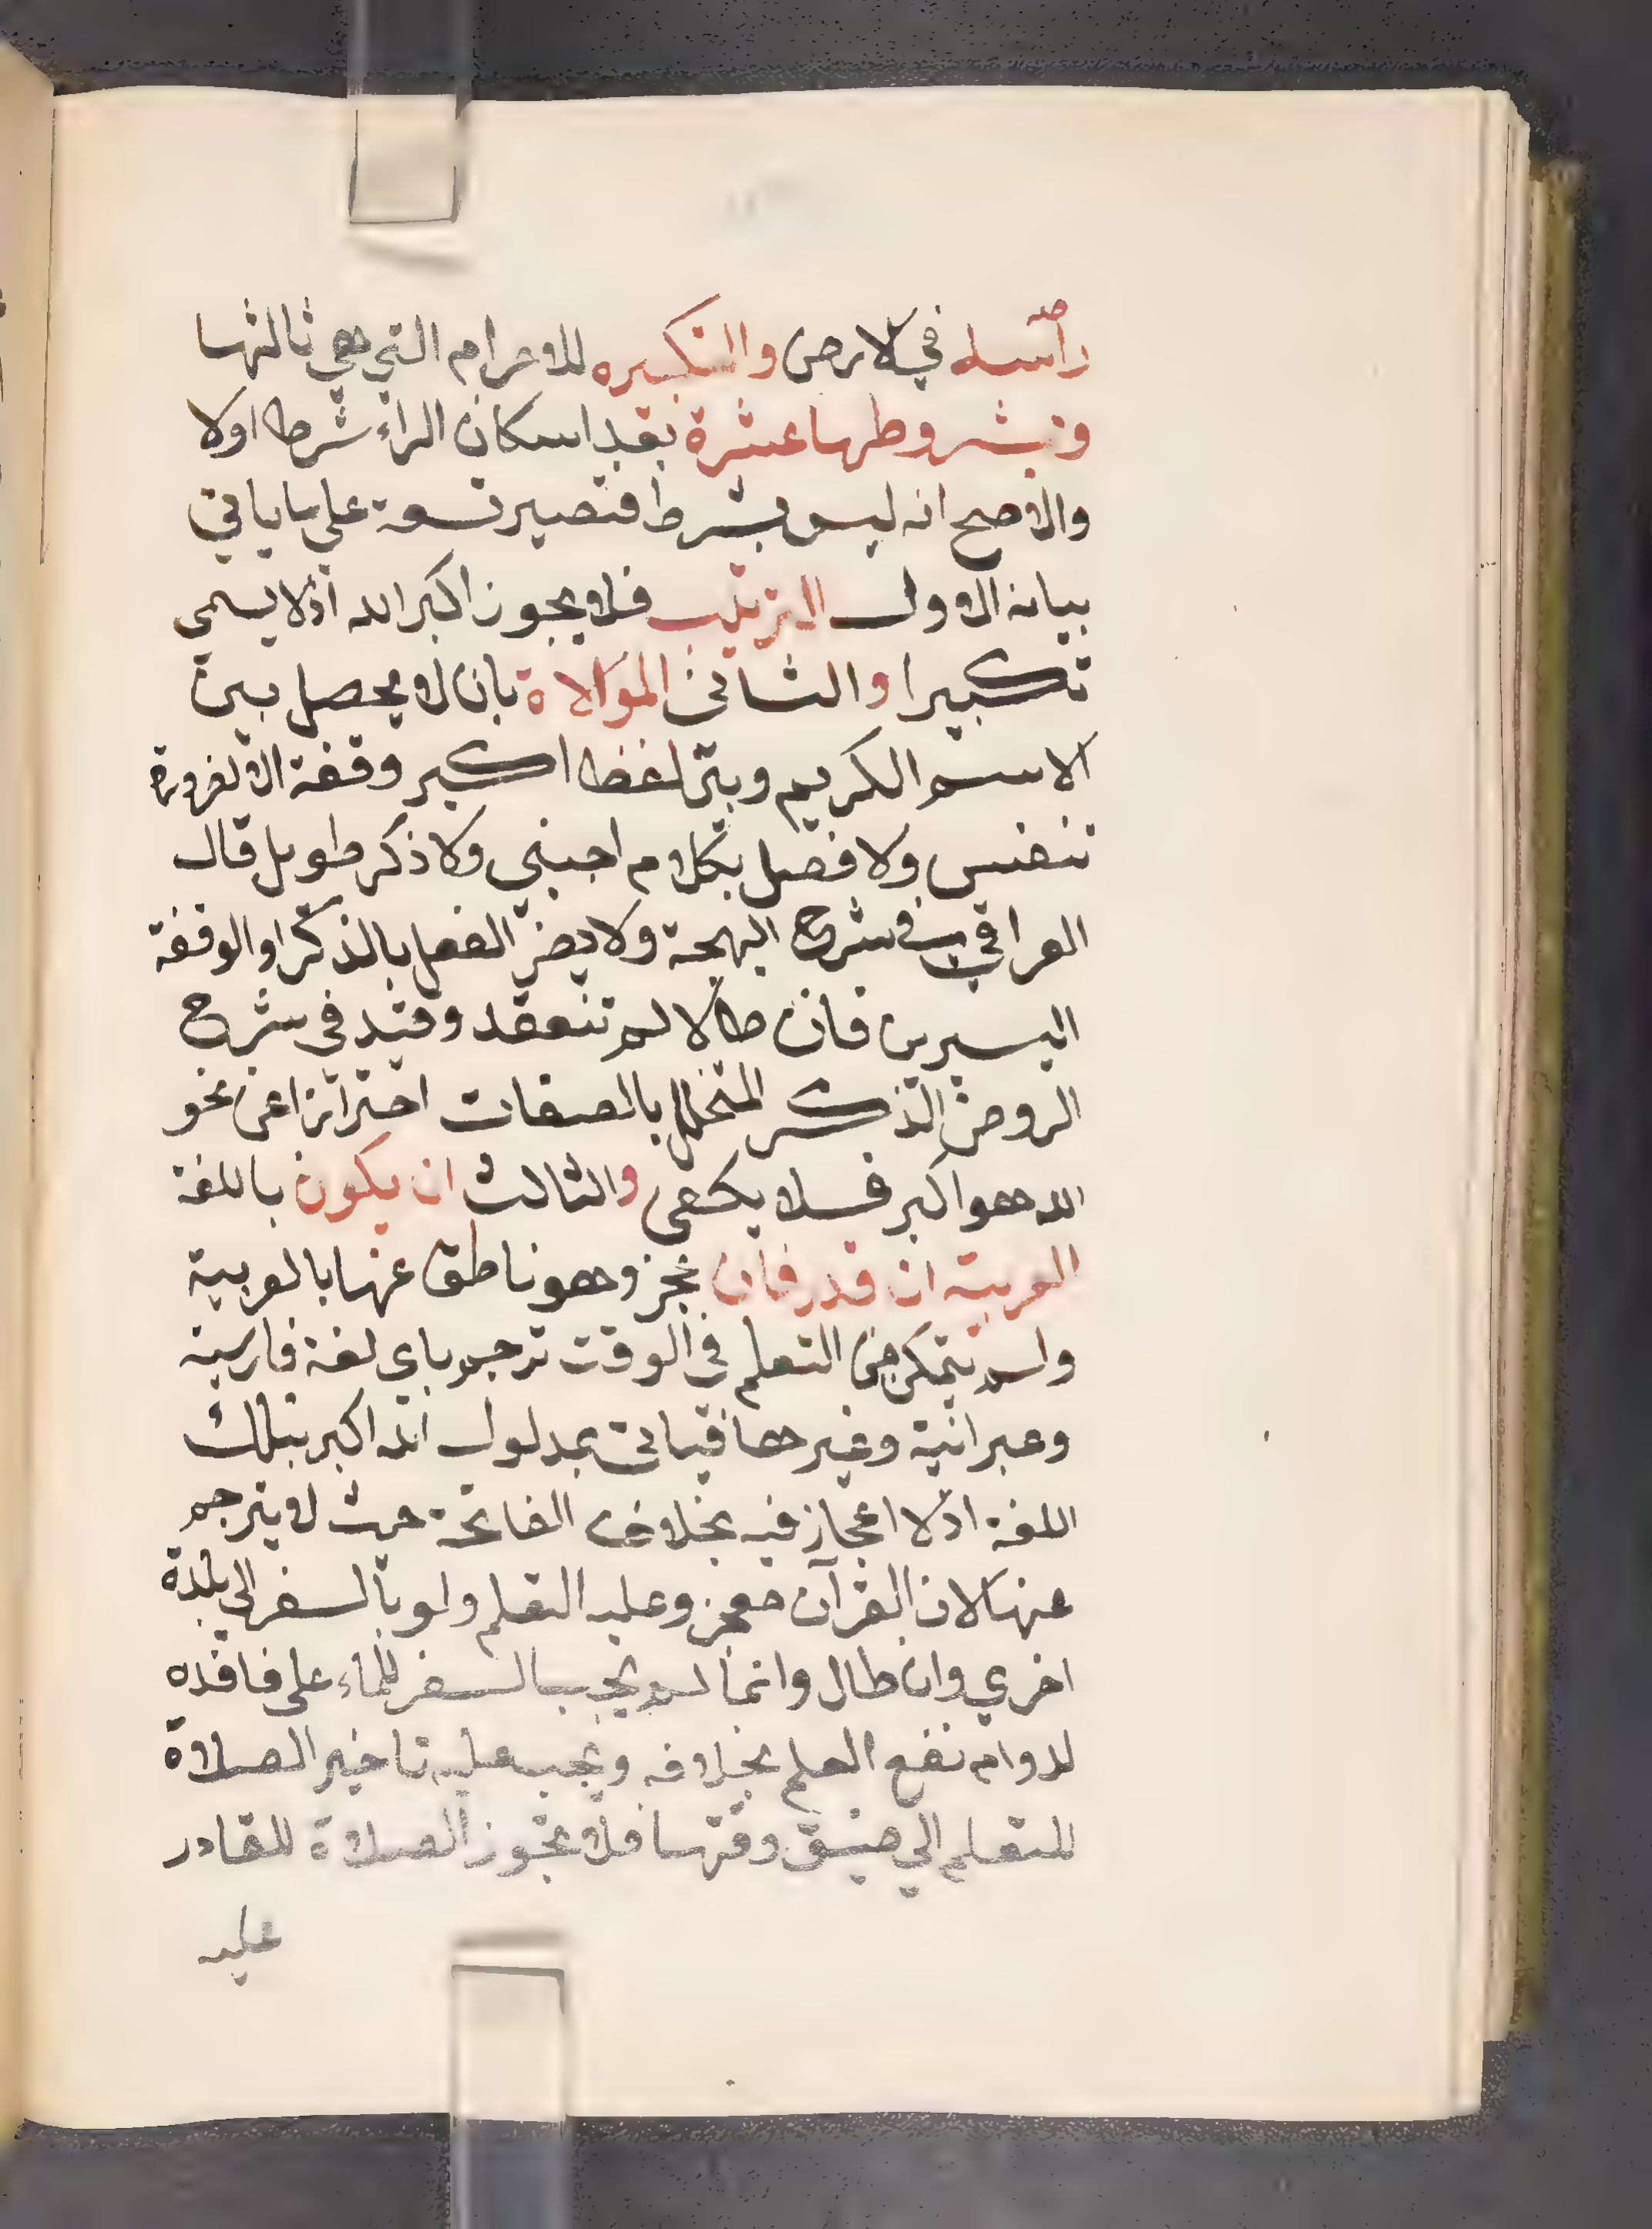 راسه في الارض والتكبيره للاحرام التي هي ثالثها
وشروطها عشرة بعد اسكان الراء شرطا اولا
والاصح انه ليس بشرط فتصير تسعة على ما ياتي
بيانه الاول الترتيب فلا يجوز اكبر الله اذ لا يسمى
تكبيرا والثاني الموالاة بان لا يحصل بين
الاسم الكريم وبين لفظ اكبر وقفة الا لضرورة
تنفس ولا فصل بكلام اجنبي ولا ذكر طويل قال
العراقي في شرح البهجة ولا يضر الفصل بالذكر او الوقفة
اليسيرين فان طالا لم تنعقد وقيد في شرح
الروض الذكر المتخلل بالصفات احترازا عن نحو
الله هو اكبر فلا يكفى والثالث ان يكون باللغة
العربية ان قدر فان عجز وهو ناطق عنها بالعربية
ولم يتمكن من التعلم في الوقت ترجم باي لغة فارسية
وعبرانية وغيرها فياتي بمدلول الله اكبر بتلك
اللغة اذ لا اعجاز فيه بخلاف الفاتحة حيث لا يترجم
عنها لان القرآن معجز وعليه التعلم ولو بالسفر الى بلدة
اخرى وان طال وانما لم يجب السفر للماء على فاقده
لدوام نفع العلم بخلافه ويجب عليه تاخير الصلاة
للتعلم الي ضيق وقتها فلا تجوز الصلاة للقادر
عليه